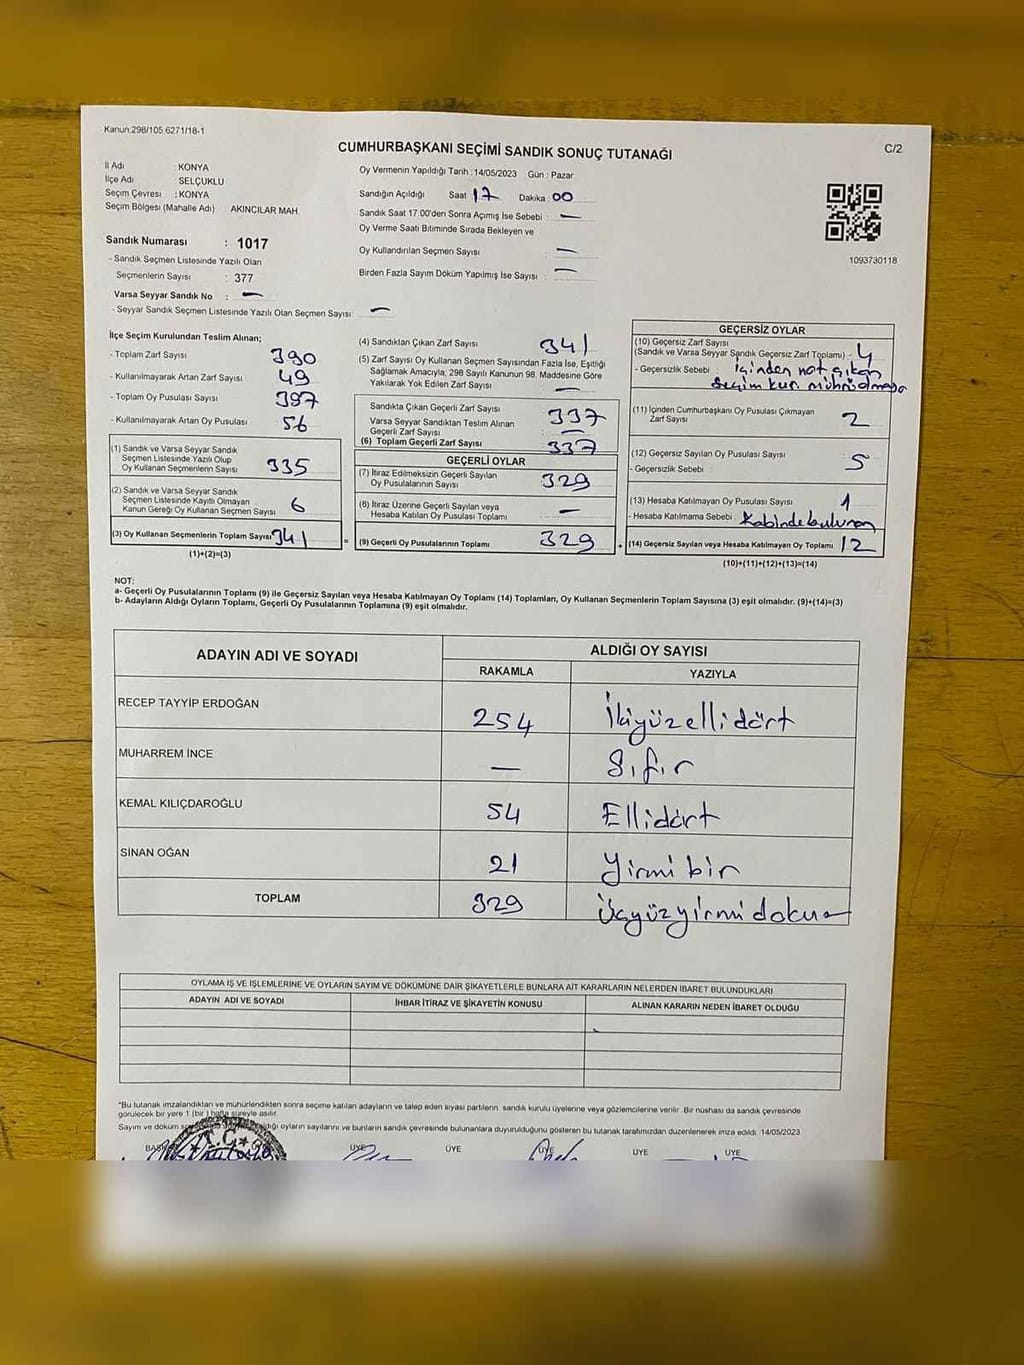 Kanun.298/105.6271/18-1
C/2
CUMHURBAŞKANI SEÇİMİ SANDIK SONUÇ TUTANAĞI
İl Adı : KONYA
İlçe Adı : SELÇUKLU
Seçim Çevresi : KONYA
Seçim Bölgesi (Mahalle Adı) AKINCILAR MAH
Sandık Numarası : 1017
- Sandık Seçmen Listesinde Yazılı Olan
Seçmenlerin Sayısı : 377
Varsa Seyyar Sandık No : —
- Seyyar Sandık Seçmen Listesinde Yazılı Olan Seçmen Sayısı: —
Oy Vermenin Yapıldığı Tarih : 14/05/2023 Gün : Pazar
Sandığın Açıldığı Saat 17 Dakika : 00
Sandık Saat 17.00'den Sonra Açımış İse Sebebi : —
Oy Verme Saati Bitiminde Sırada Bekleyen ve
Oy Kullandırılan Seçmen Sayısı : —
Birden Fazla Sayım Döküm Yapılmış İse Sayısı : —
1093730118
İlçe Seçim Kurulundan Teslim Alınan;
- Toplam Zarf Sayısı 390
- Kullanılmayarak Artan Zarf Sayısı 49
- Toplam Oy Pusulası Sayısı 397
- Kullanılmayarak Artan Oy Pusulası 56
(1) Sandık ve Varsa Seyyar Sandık
Seçmen Listesinde Yazılı Olup
Oy Kullanan Seçmenlerin Sayısı 335
(2) Sandık ve Varsa Seyyar Sandık
Seçmen Listesinde Kayıtlı Olmayan
Kanun Gereği Oy Kullanan Seçmen Sayısı : 6
(3) Oy Kullanan Seçmenlerin Toplam Sayısı: 341
(1)+(2)=(3)
(4) Sandıktan Çıkan Zarf Sayısı 341
(5) Zarf Sayısı Oy Kullanan Seçmen Sayısından Fazla İse, Eşitliği
Sağlamak Amacıyla; 298 Sayılı Kanunun 98. Maddesine Göre
Yakılarak Yok Edilen Zarf Sayısı : —
Sandıkta Çıkan Geçerli Zarf Sayısı : 337
Varsa Seyyar Sandıktan Teslim Alınan
Geçerli Zarf Sayısı : —
(6) Toplam Geçerli Zarf Sayısı 337
GEÇERLİ OYLAR
(7) İtiraz Edilmeksizin Geçerli Sayılan
Oy Pusulalarının Sayısı : 329
(8) İtiraz Üzerine Geçerli Sayılan veya
Hesaba Katılan Oy Pusulası Toplamı : —
= (9) Geçerli Oy Pusulalarının Toplamı 329 +
GEÇERSİZ OYLAR
(10) Geçersiz Zarf Sayısı
(Sandık ve Varsa Seyyar Sandık Geçersiz Zarf Toplamı) - 4
- Geçersizlik Sebebi : İçinden not çıkan
Seçim kur. mührü olmayan
(11) İçinden Cumhurbaşkanı Oy Pusulası Çıkmayan
Zarf Sayısı 2
(12) Geçersiz Sayılan Oy Pusulası Sayısı : 5
- Geçersizlik Sebebi
(13) Hesaba Katılmayan Oy Pusulası Sayısı : 1
- Hesaba Katılmama Sebebi : Kabinde bulunan
(14) Geçersiz Sayılan veya Hesaba Katılmayan Oy Toplamı : 12
(10)+(11)+(12)+(13)=(14)
NOT:
a- Geçerli Oy Pusulalarının Toplamı (9) ile Geçersiz Sayılan veya Hesaba Katılmayan Oy Toplamı (14) Toplamları, Oy Kullanan Seçmenlerin Toplam Sayısına (3) eşit olmalıdır. (9)+(14)=(3)
b- Adayların Aldığı Oyların Toplamı, Geçerli Oy Pusulalarının Toplamına (9) eşit olmalıdır.
ADAYIN ADI VE SOYADI
ALDIĞI OY SAYISI
RAKAMLA YAZIYLA
RECEP TAYYİP ERDOĞAN 254 İkiyüzellidört
MUHARREM İNCE — Sıfır
KEMAL KILIÇDAROĞLU 54 Ellidört
SİNAN OĞAN 21 Yirmi bir
TOPLAM 329 Üçyüzyirmidokuz
OYLAMA İŞ VE İŞLEMLERİNE VE OYLARIN SAYIM VE DÖKÜMÜNE DAİR ŞİKAYETLERLE BUNLARA AİT KARARLARIN NELERDEN İBARET BULUNDUKLARI
ADAYIN ADI VE SOYADI İHBAR İTİRAZ VE ŞİKAYETİN KONUSU ALINAN KARARIN NEDEN İBARET OLDUĞU
*Bu tutanak imzalandıktan ve mühürlendikten sonra seçime katılan adayların ve talep eden siyasi partilerin sandık kurulu üyelerine veya gözlemcilerine verilir. Bir nüshası da sandık çevresinde
görülecek bir yere 1 (bir) hafta süreyle asılır.
Sayım ve döküm oyların sayılarını ve bunların sandık çevresinde bulunanlara duyurulduğunu gösteren bu tutanak taraftmızdan düzenlenerek imza edildi. 14/05/2023
T.C.
ÜYE ÜYE ÜYE ÜYE ÜYE